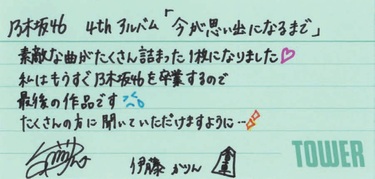 乃木坂46 4thアルバム「今が思い出になるまで」
素敵な曲がたくさん詰まった1枚になりました
私はもうすぐ乃木坂46を卒業するので
最後の作品です
たくさんの方に聞いていただけますように…
伊藤かりん
TOWER